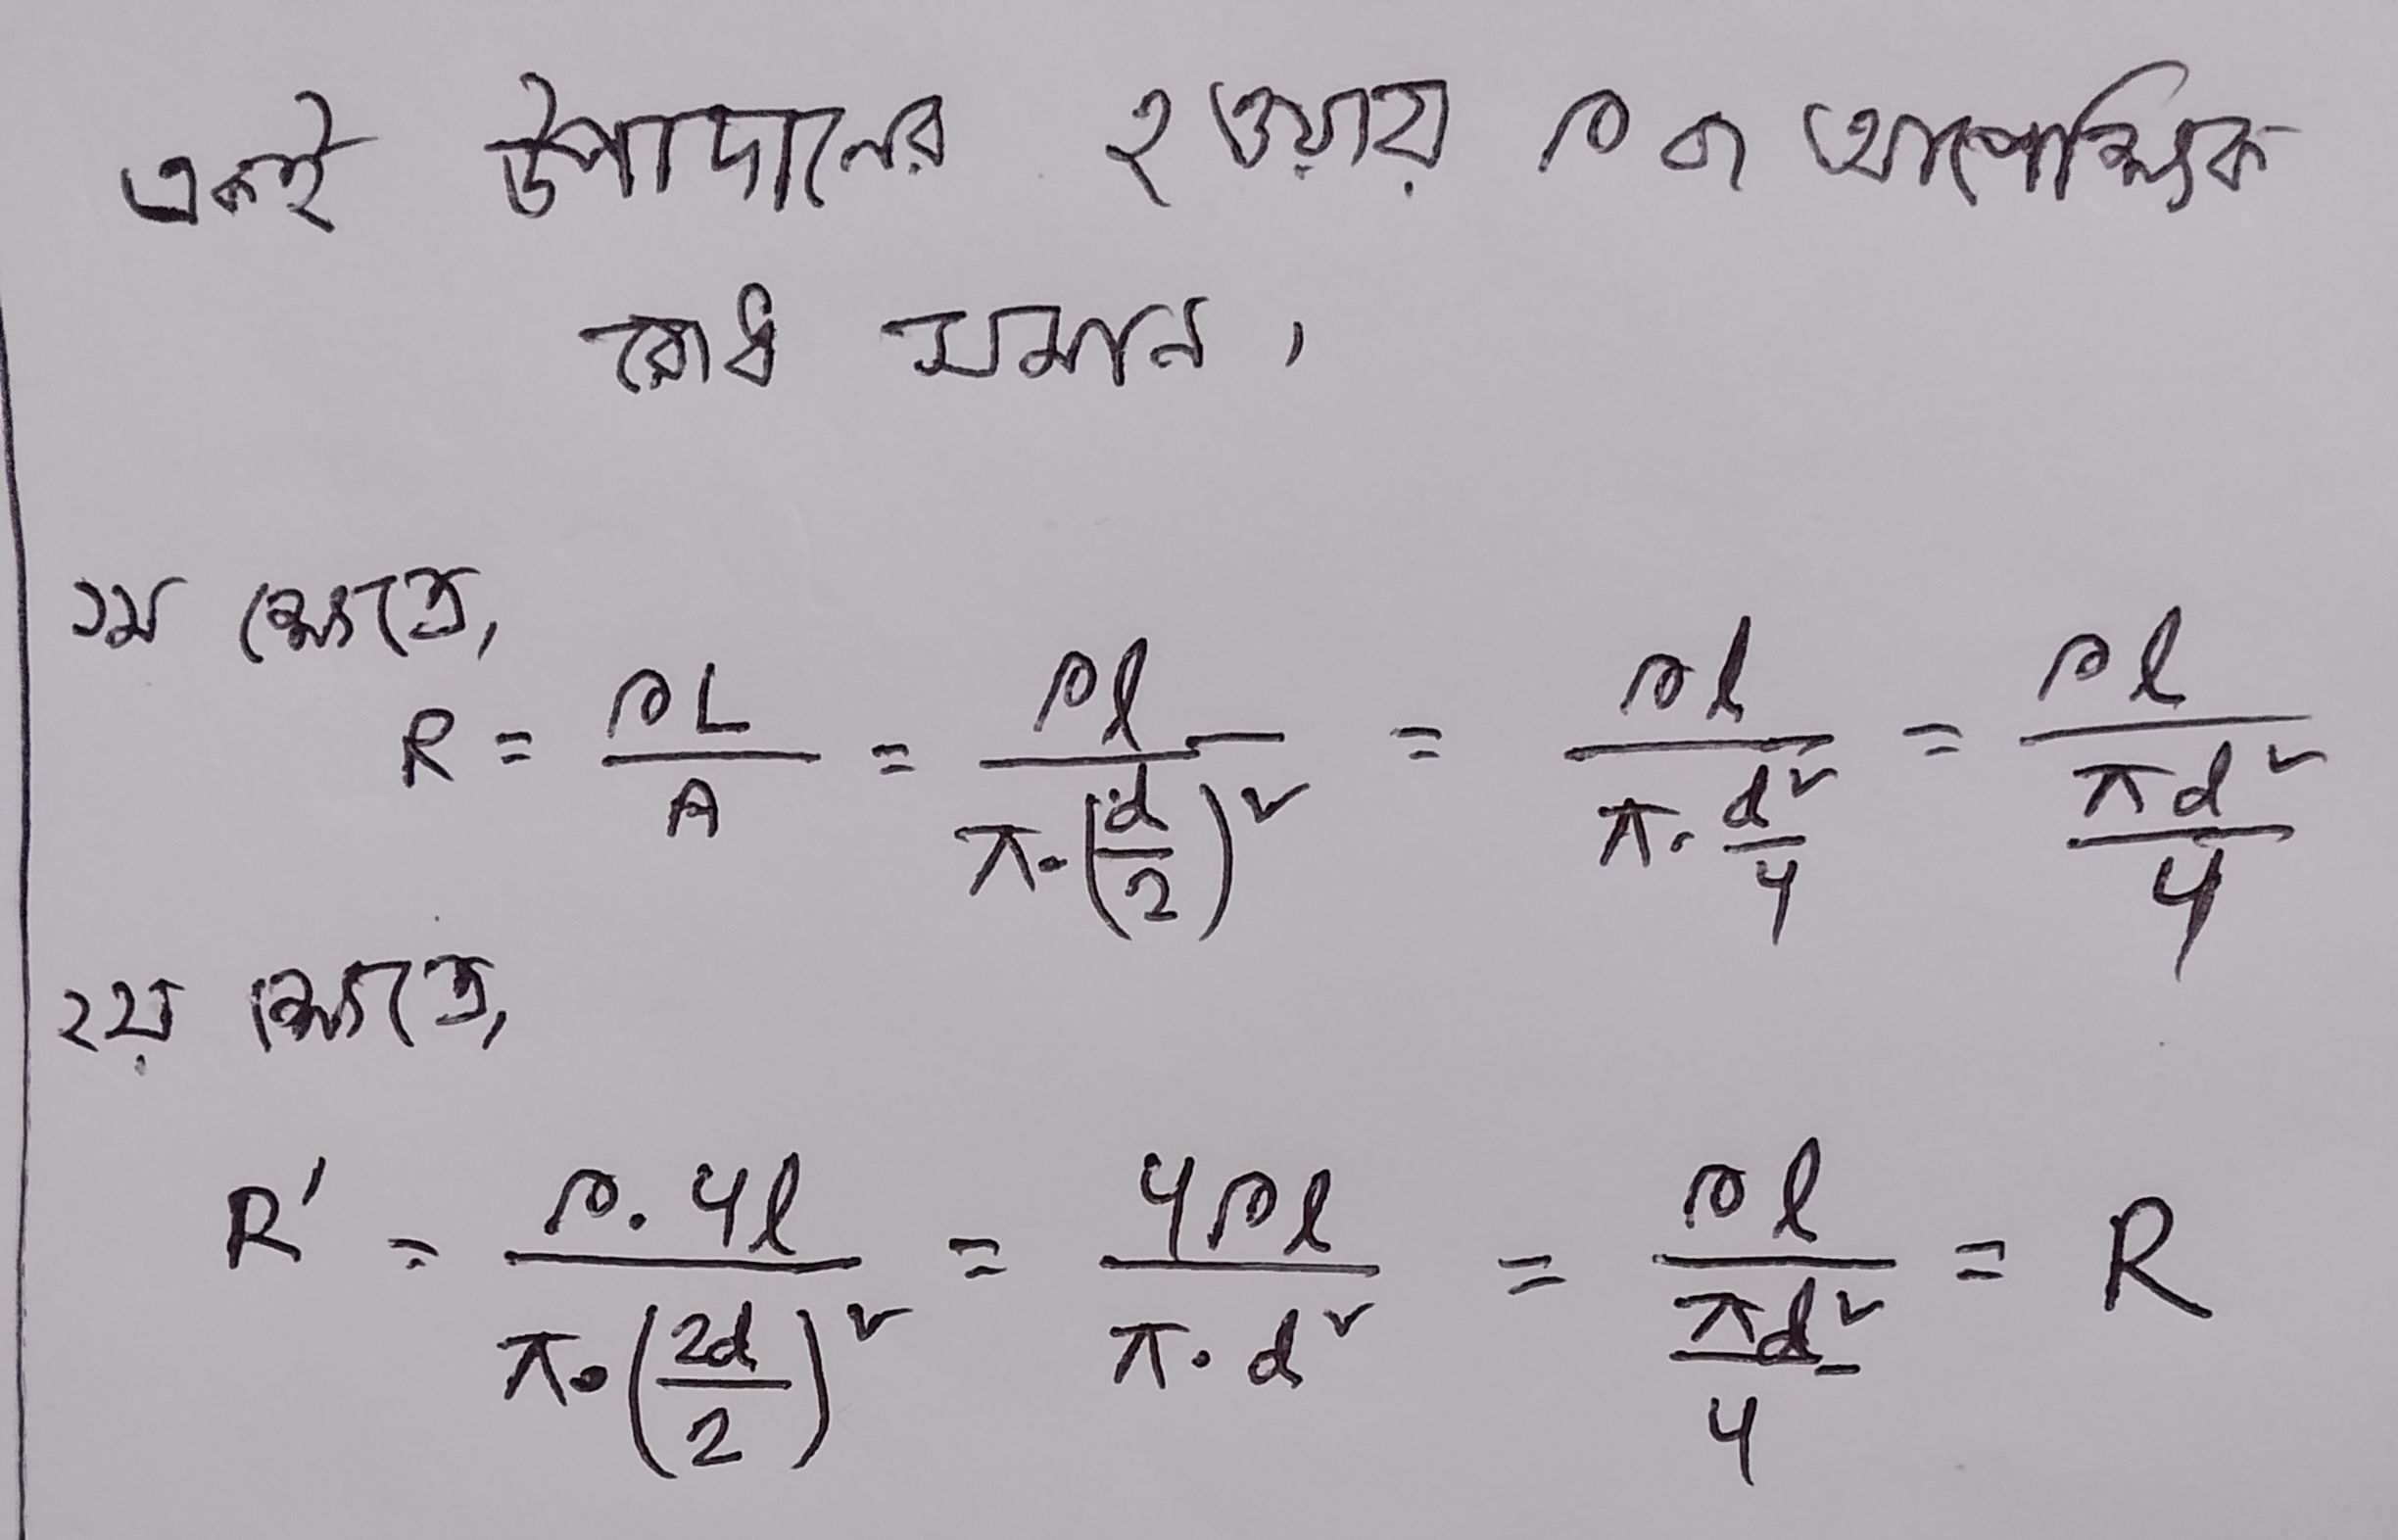 একই উপাদানের হওয়ায় ρ বা আপেক্ষিক
রোধ সমান,
১ম ক্ষেত্রে,
R = ρL/A = ρl/(π·(d/2)²) = ρl/(π·d²/4) = ρl/(πd²/4)
২য় ক্ষেত্রে,
R' = ρ·4l/(π·(2d/2)²) = 4ρl/(π·d²) = ρl/(πd²/4) = R